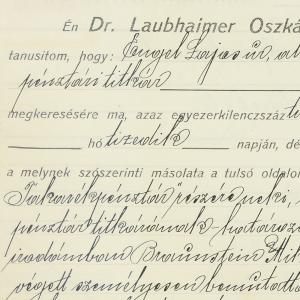 Én Dr. Laubhaimer Oszká
tanusitom, hogy: Engel Lajos úr, al
pénztári titkár
megkeresésére ma, azaz egyezerkilenczszáz ti
hó tizedik napján, dé
a melynek szószerinti másolata a tulsó oldalo
Takarékpénztár" részére neki,
pénztár titkárának- határozo
irodámban Braunstein Mik
végett személyesen bemutatta